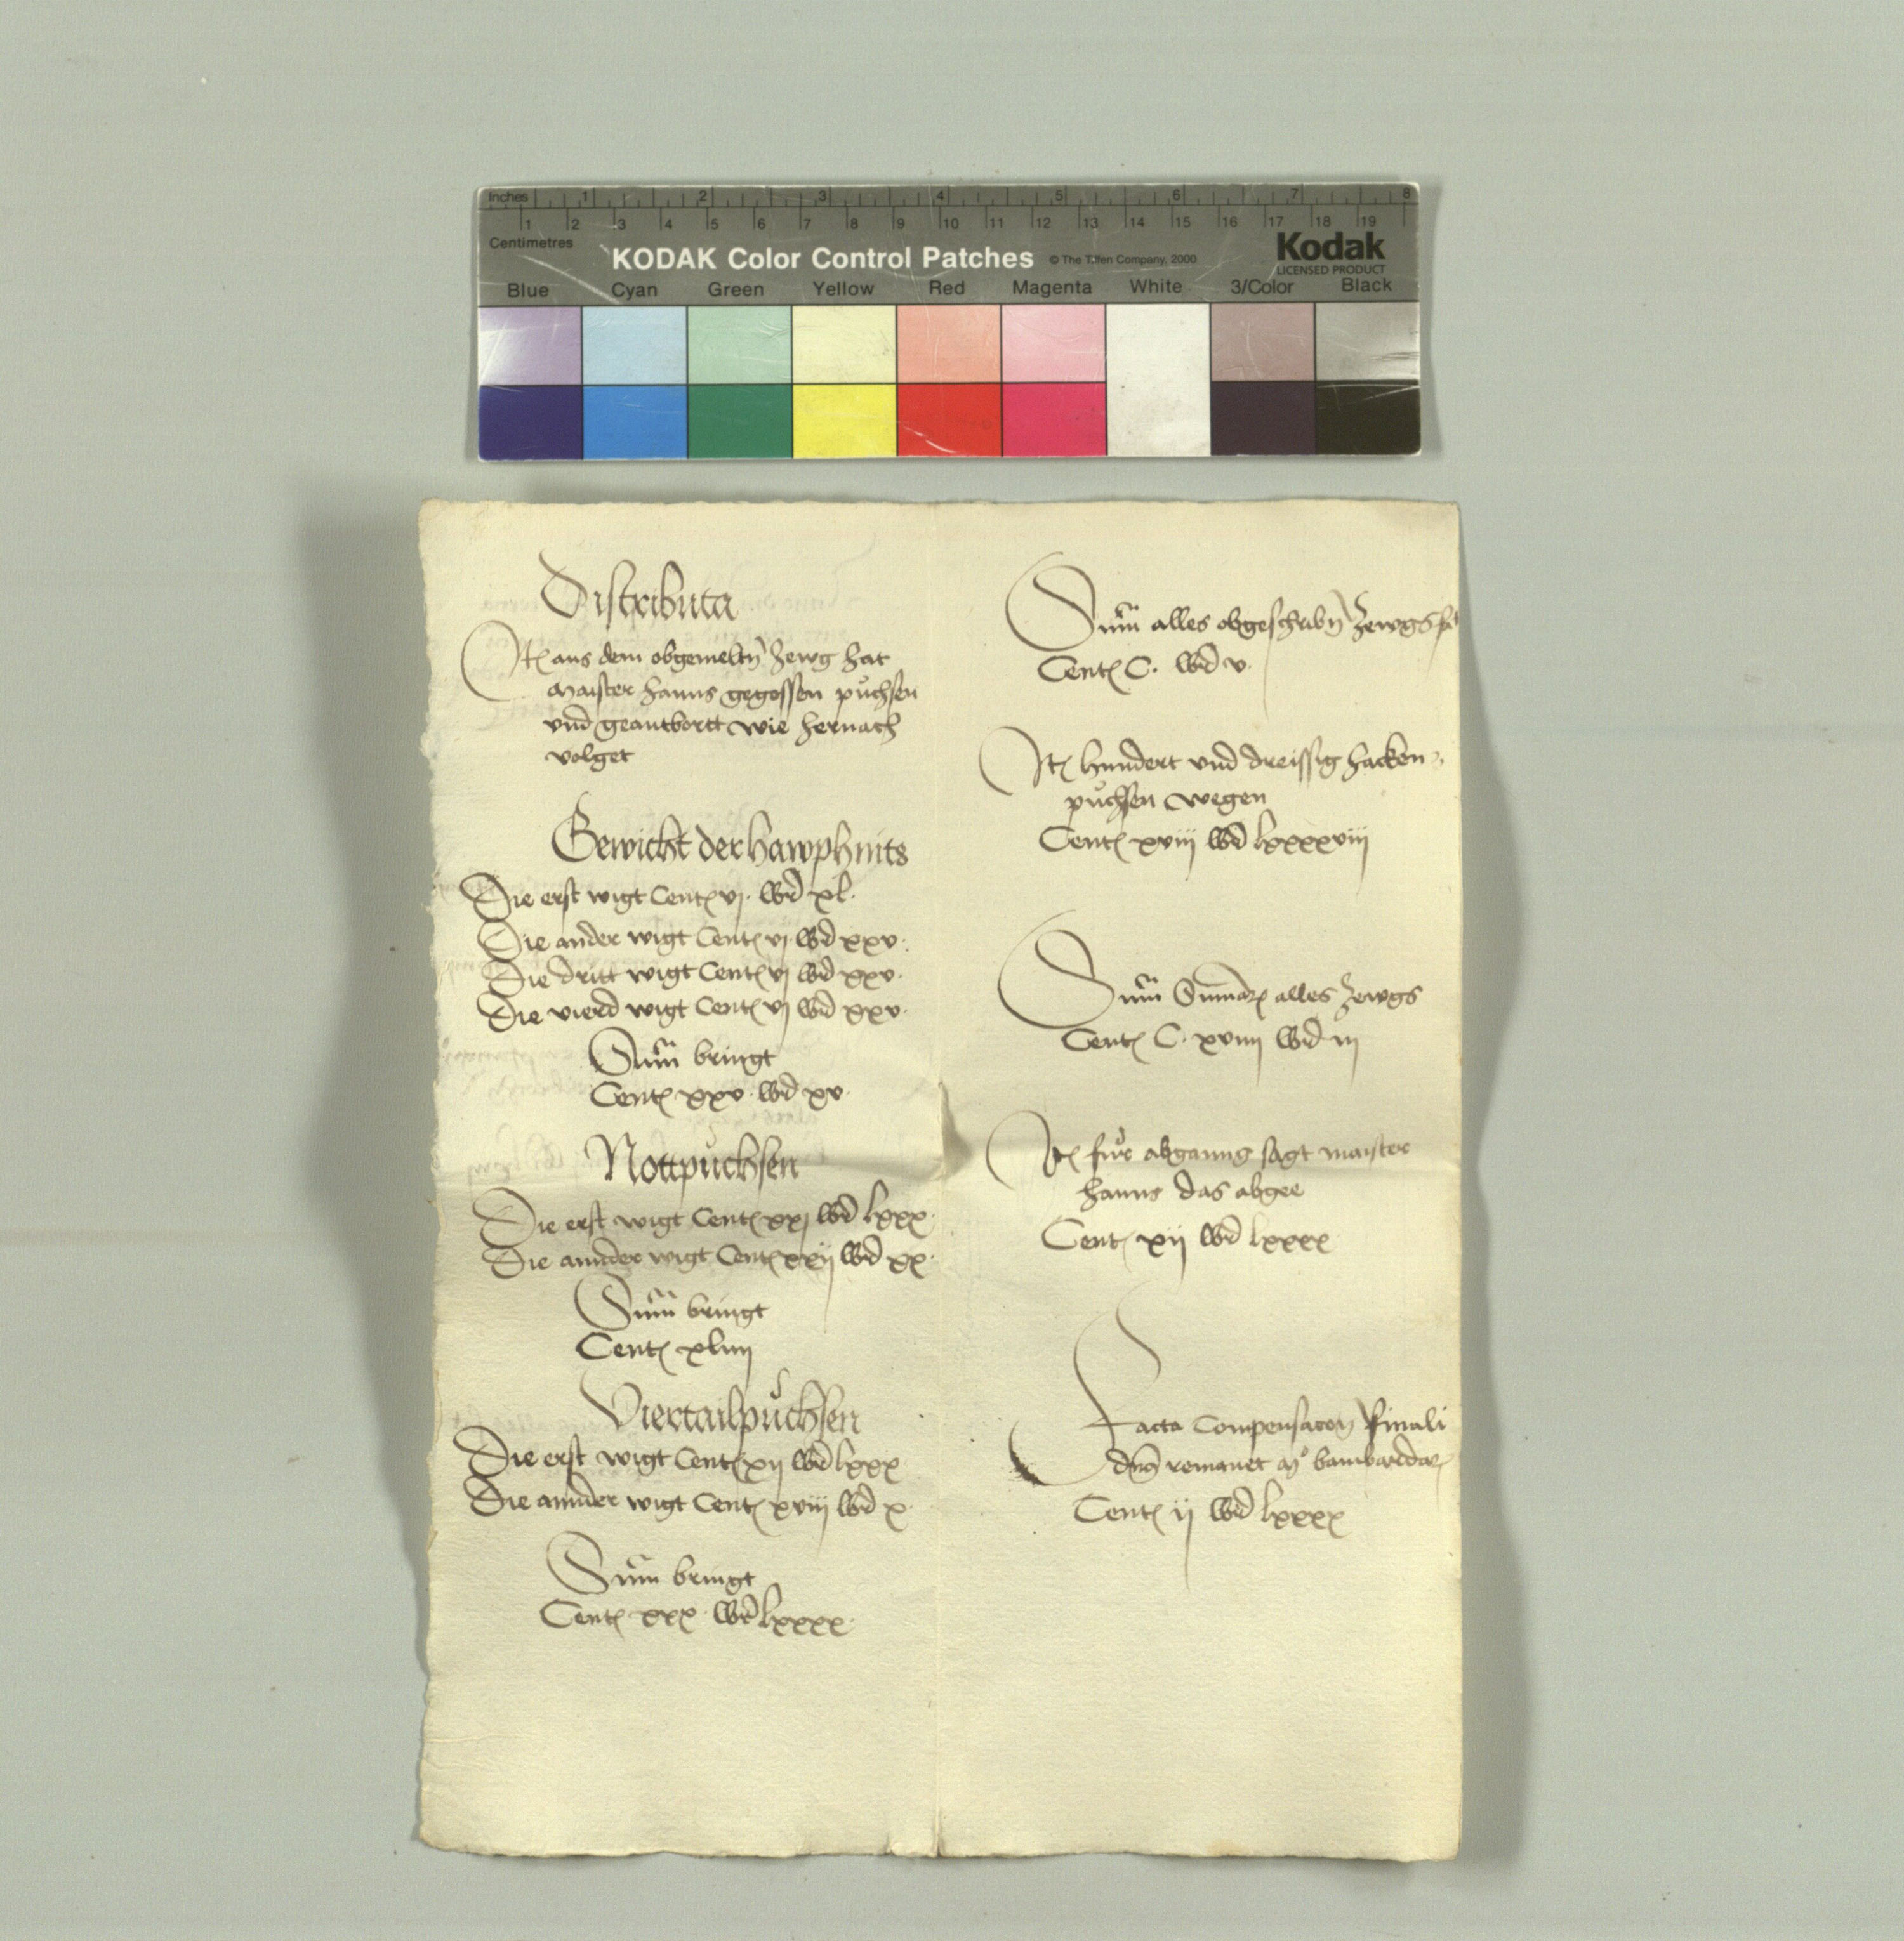 Inches 1 2 3 4 5 6 7 8
1 2 3 4 5 6 7 8 9 10 11 12 13 14 15 16 17 18 19
Centimetres
KODAK Color Control Patches © The Tiffen Company, 2000 Kodak
LICENSED PRODUCT
Blue Cyan Green Yellow Red Magenta White 3/Color Black
Distributa
Itꝫ aus dem obgemeltn̄ zewg hat
maister hanns gegossen puͦchsen
vnd geantbortt wie hernach
volget
Gewicht der hawphnits
Die erst wigt Centꝫ vj. lbd xl.
Die ander wigt Centꝫ vj lbd xxv.
Die dritt wigt Centꝫ vj lbd xxv.
Die vierd wigt Centꝫ vj lbd xxv.
Sum̄ bringt
Centꝫ xxv. lbd xv.
Nottpuͦchsen
Die erst wigt Centꝫ xxj lbd lxxx.
Die annder wigt Centꝫ xxij lbd xx.
Sum̄ bringt
Centꝫ xliiij
Viertailpuͦchsen
Die erst wigt Centꝫ xij lbd lxxx
Die annder wigt Centꝫ xviij lbd x.
Sum̄ bringt
Centꝫ xxx. lbd lxxxx.
Sum̄ alles obgeschribn̄ zewgs
Centꝫ C. lbd v.
Itꝫ hundert vnd dreissig hacken
puͦchsen wegen
Centꝫ xviij lbd lxxxxviij
Sum̄ Sum̄arꝫ alles zewgs
Centꝫ C. xviiij lbd iij
Itꝫ fuͦr abganng sagt maister
hanns das abgee
Centꝫ xij lbd lxxxx
Facta Compensacon̄ finali
remanet mͦ bambardarꝫ
Centꝫ ij lbd lxxxx